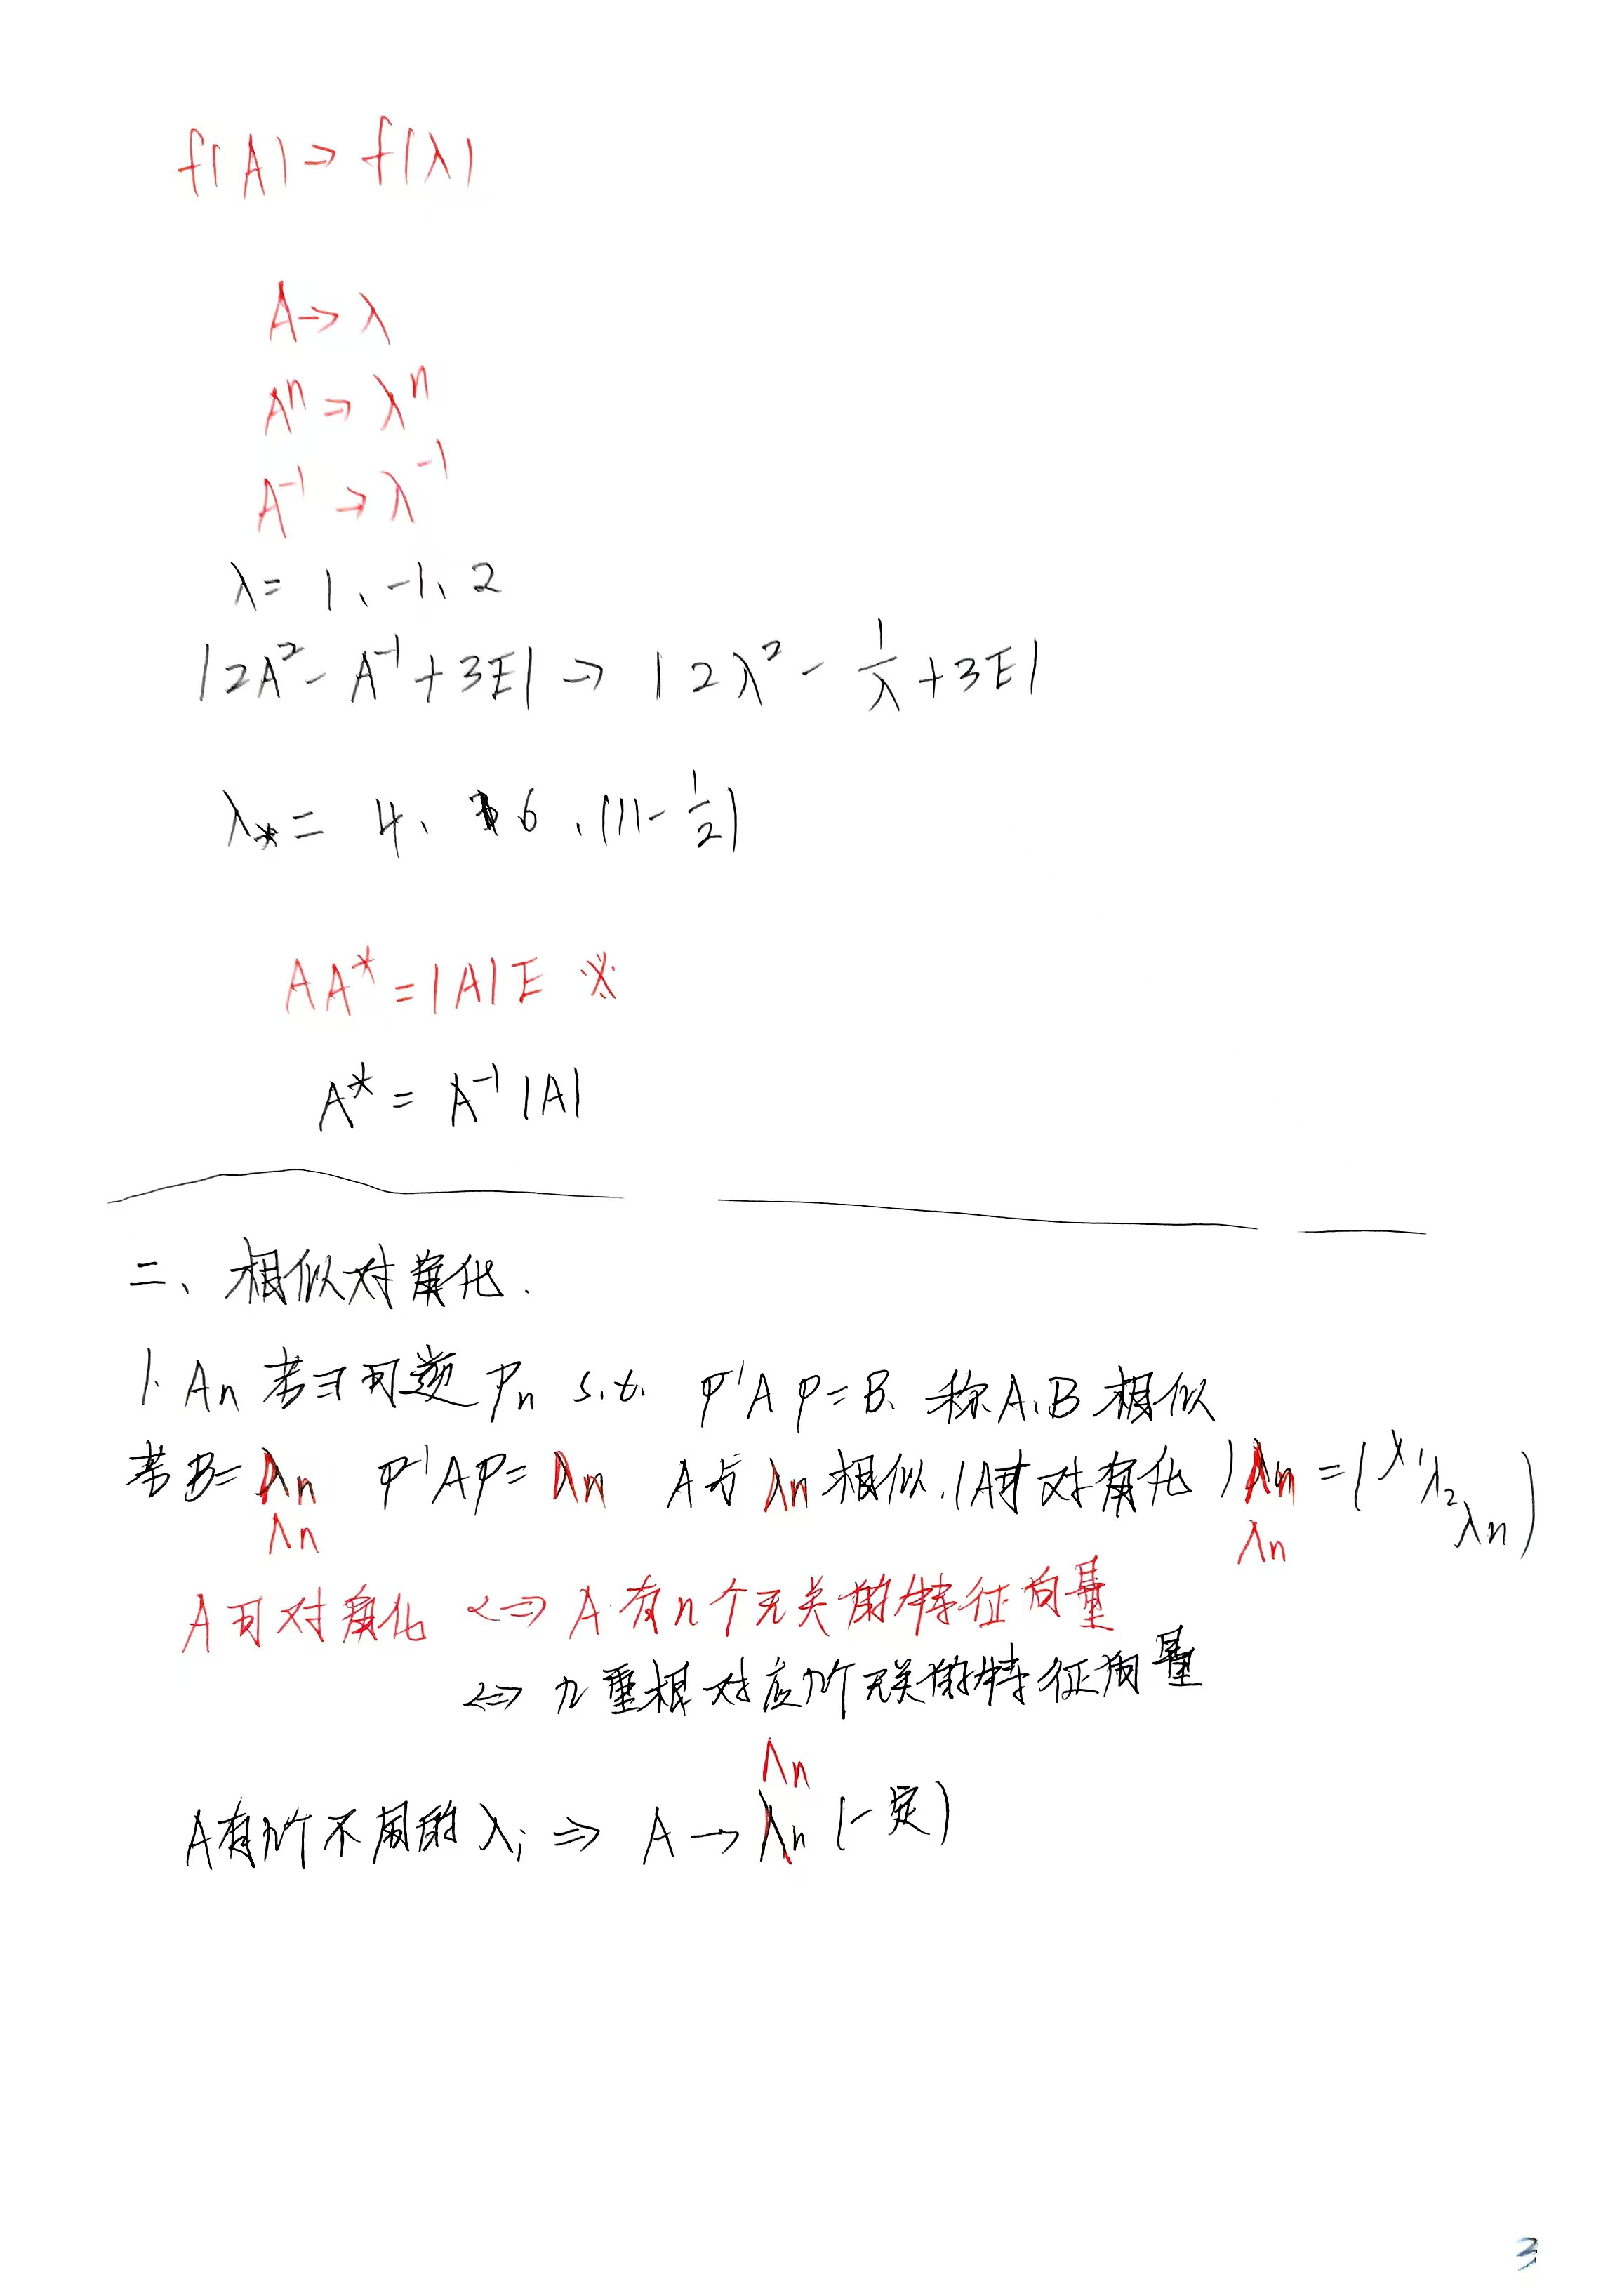 f(A) → f(λ)
A → λ
Aⁿ → λⁿ
A⁻¹ → λ⁻¹
λ = 1、-1、2
|2A² - A⁻¹ + 3E| → |2λ² - 1/λ + 3E|
λ* = 4、6、(11 - 1/2)
AA* = |A|E ※
A* = A⁻¹|A|
二、相似对角化.
1. An 若∃可逆 Pn s.t. P⁻¹AP = B、称A、B相似
若B = Λn P⁻¹AP = Λn A与Λn相似.(A可对角化) Λn = (λ₁ λ₂ λn)
Λn λn
A可对角化 <=> A有n个无关的特征向量
<=> n重根对应n个无关的特征向量
Λn
A有n个不同的λi => A → Λn (一定)
3